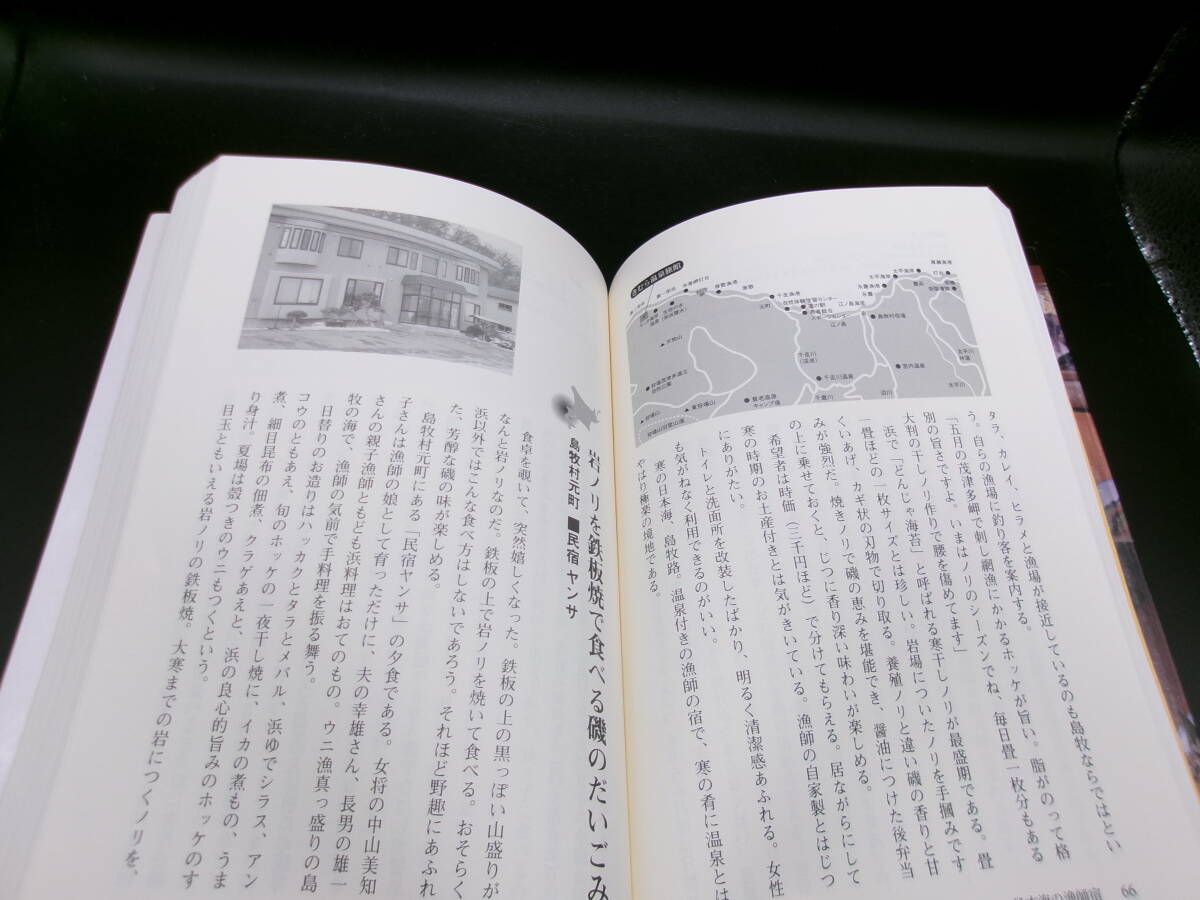 タラ、カレイ、ヒラメと漁場が接近しているのも島牧ならではとい
う。自らの漁場に釣り客を案内する。
「五月の茂津多岬で刺し網漁にかかるホッケが旨い。脂がのって格
別の旨さですよ。いまはノリのシーズンでね、毎日畳一枚分もある
大判の干しノリ作りで腰を傷めてます」
浜で「どんじゃ海苔」と呼ばれる寒干しノリが最盛期である。畳
一畳ほどの一枚サイズとは珍しい。岩場についたノリを手摑みです
くいあげ、カギ状の刃物で切り取る。養殖ノリと違い磯の香りと甘
みが強烈だ。焼きノリで磯の恵みを堪能でき、醤油につけた後弁当
の上に乗せておくと、じつに香り深い味わいが楽しめる。居ながらにして
希望者は時価（三千円ほど）で分けてもらえる。漁師の自家製とはじつ
寒の時期のお土産付きとは気がきいている。
にありがたい。
トイレと洗面所を改装したばかり、明るく清潔感あふれる。女性
も気がねなく利用できるのがいい。
寒の日本海、島牧路。温泉付きの漁師の宿で、寒の肴に温泉とは
やはり極楽の境地である。
66
きむら温泉旅館
千走川温泉
宮内温泉
島牧村役場
江ノ島
賀老高原
キャンプ場
狩場山
東狩場山
大平山
泊川
千走川
岩ノリを鉄板焼で食べる磯のだいごみ
島牧村元町 ■民宿 ヤンサ
食卓を覗いて、突然嬉しくなった。鉄板の上の黒っぽい山盛りが
なんと岩ノリなのだ。鉄板の上で岩ノリを焼いて食べる。おそらく
浜以外ではこんな食べ方はしないであろう。それほど野趣にあふれ
た、芳醇な磯の味が楽しめる。
島牧村元町にある「民宿ヤンサ」の夕食である。女将の中山美知
子さんは漁師の娘として育っただけに、夫の幸雄さん、長男の雄一
さんの親子漁師ともども浜料理はおてのもの。ウニ漁真っ盛りの島
牧の海で、漁師の気前で手料理を振る舞う。
日替りのお造りはハッカクとタラとメバル、浜ゆでシラス、アン
コウのともあえ、旬のホッケの一夜干し焼に、イカの煮もの、うま
煮、細目昆布の佃煮、クラゲあえと、浜の良心的旨みのホッケのす
り身汁。夏場は殻つきのウニもつくという。
目玉ともいえる岩ノリの鉄板焼。大寒までの岩につくノリを、